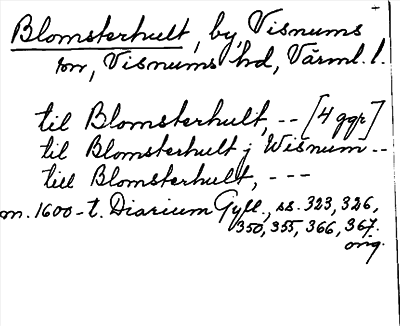 Blomsterhult, by, Visnums
sn, Visnums hd, Värml. l.
til Blomsterhult, -- [4 ggr]
til Blomsterhult j Wisnum --
till Blomsterhult, ---
m. 1600-t. Diarium Gyll., ss. 323, 326,
350, 355, 366, 367.
orig.